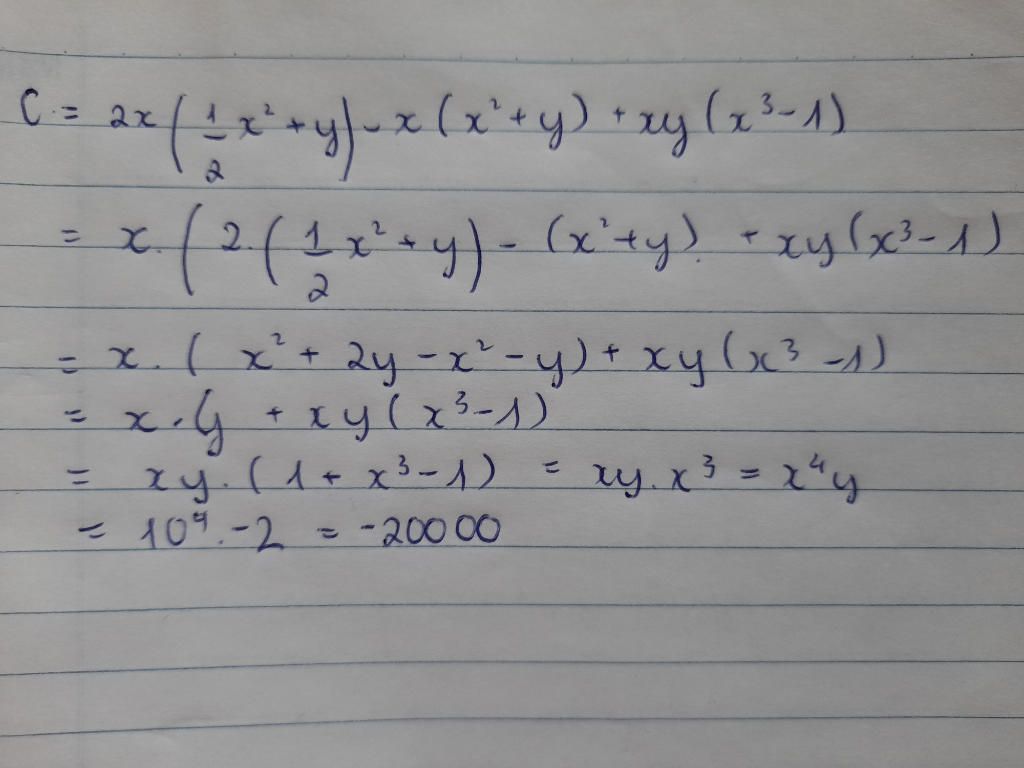 C = 2x(1/2 x² + y) - x(x² + y) + xy(x³ - 1)
= x.(2.(1/2 x² + y) - (x² + y). + xy(x³ - 1)
= x.( x² + 2y - x² - y) + xy(x³ - 1)
= x.y + xy(x³ - 1)
= xy.(1 + x³ - 1) = xy.x³ = x⁴y
= 10⁴.-2 = -20000